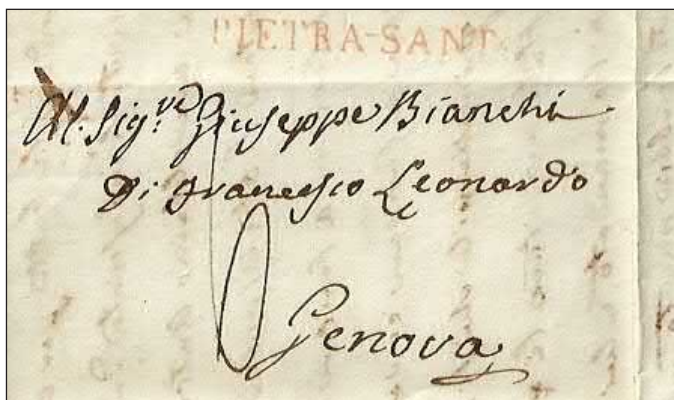 PIETRA-SANT
Al. Sig.re Giuseppe Bianchi
Di Francesco Leonardo
Genova